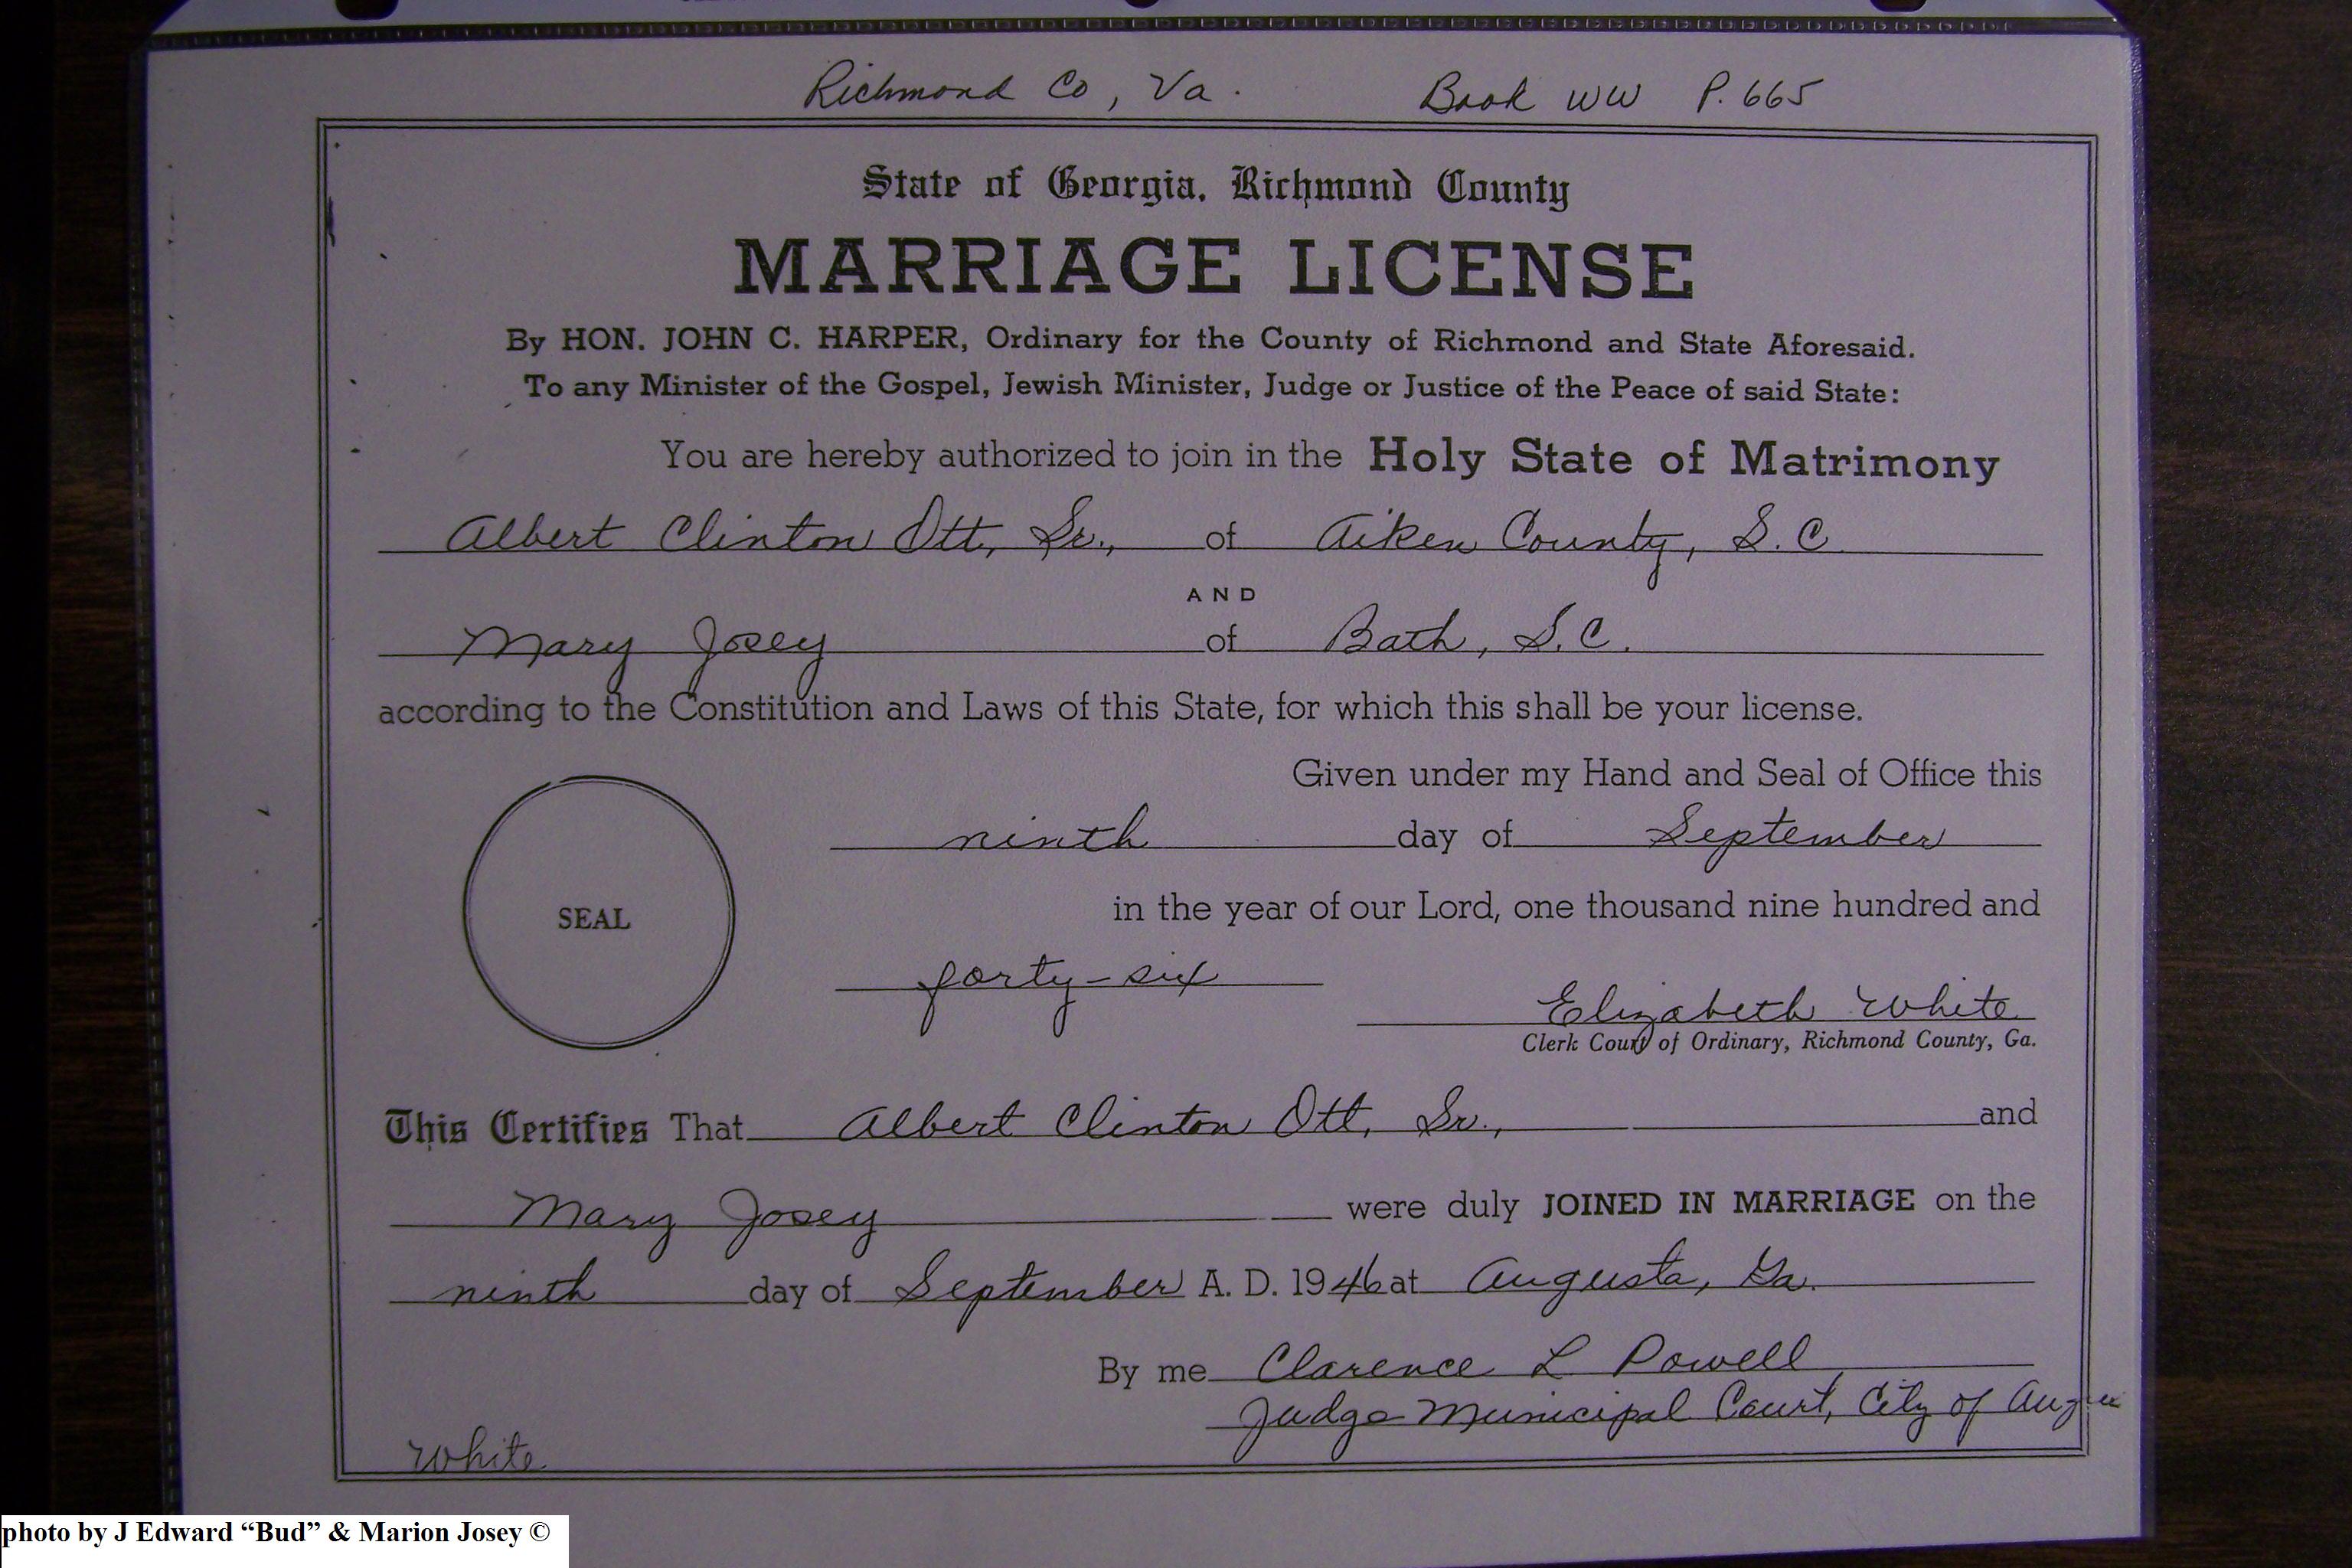 Richmond Co, Va. Book WW P. 665
State of Georgia, Richmond County
MARRIAGE LICENSE
By HON. JOHN C. HARPER, Ordinary for the County of Richmond and State Aforesaid.
To any Minister of the Gospel, Jewish Minister, Judge or Justice of the Peace of said State:
You are hereby authorized to join in the Holy State of Matrimony
Albert Clinton Ott, Sr., of Aiken County, S.C.
AND
Mary Josey of Bath, S.C.
according to the Constitution and Laws of this State, for which this shall be your license.
Given under my Hand and Seal of Office this
ninth day of September
SEAL
in the year of our Lord, one thousand nine hundred and
forty-six
Elizabeth White
Clerk Court of Ordinary, Richmond County, Ga.
This Certifies That Albert Clinton Ott, Sr., and
Mary Josey were duly JOINED IN MARRIAGE on the
ninth day of September A. D. 1946 at Augusta, Ga.
By me Clarence L Powell
Judge Municipal Court, City of
White
photo by J Edward “Bud” & Marion Josey ©